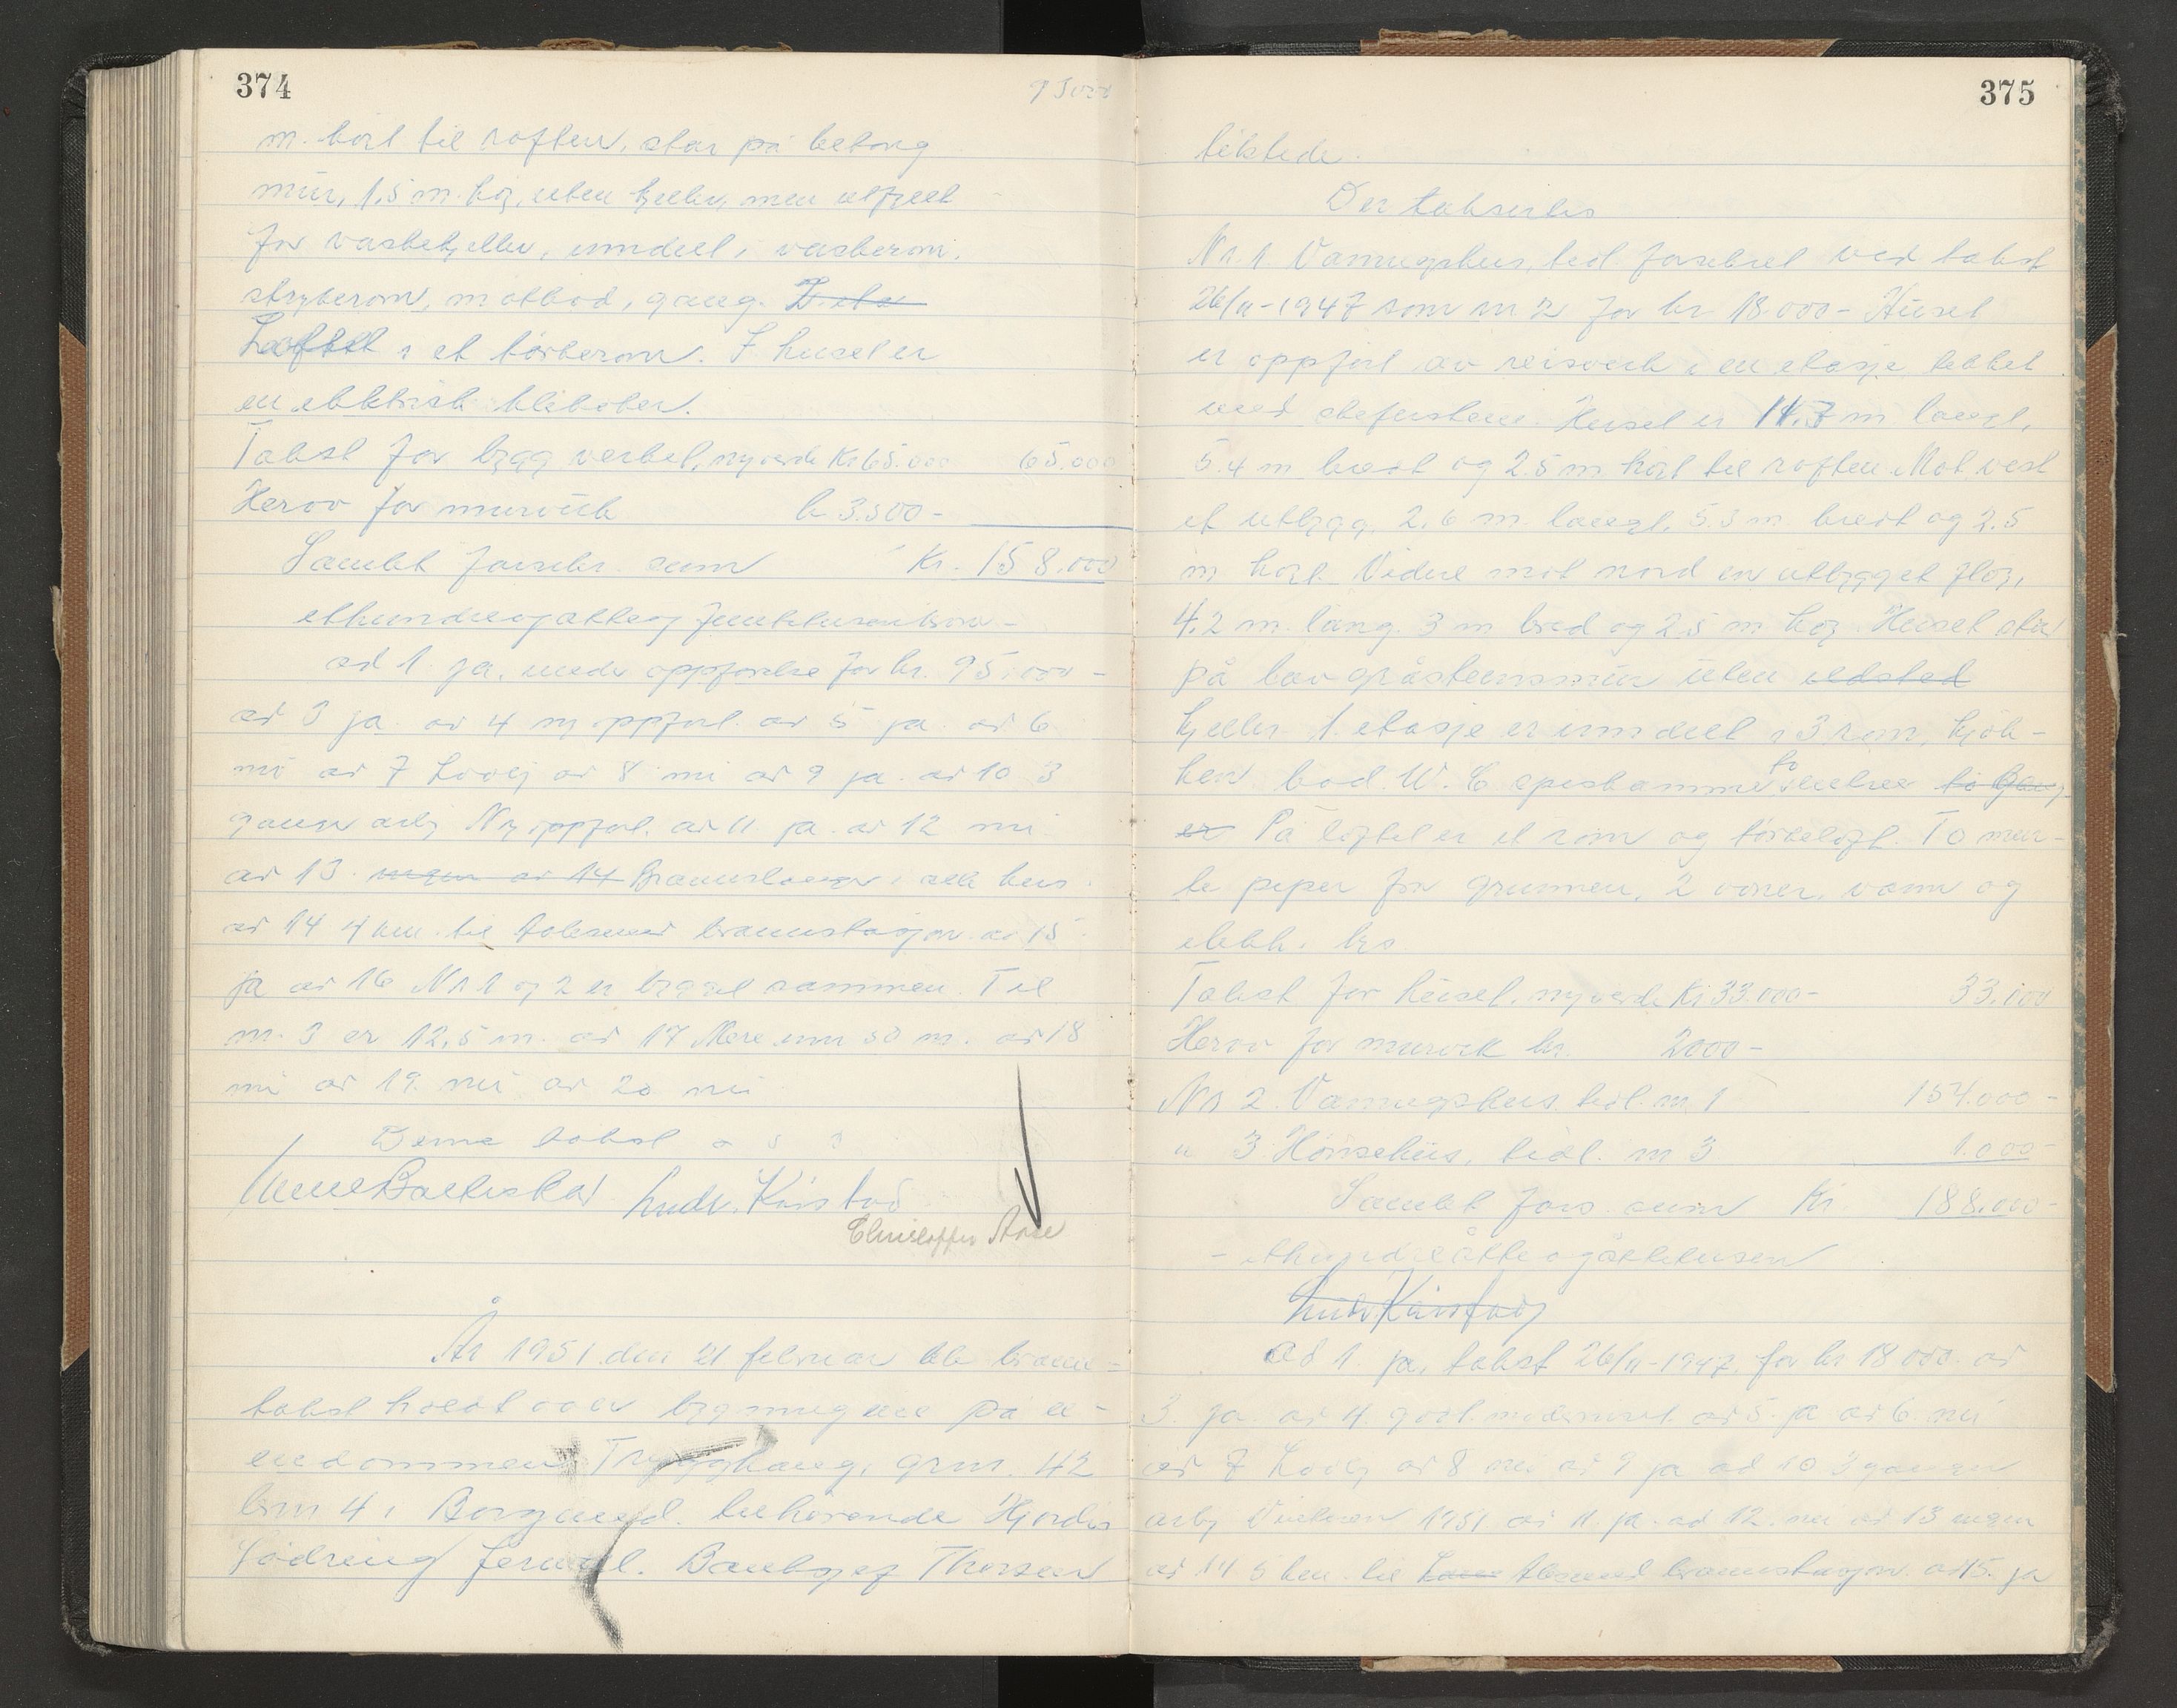 374
m. høit til raften, står på betong
mur, 1,5 m. høg, uten kjeller, men utfjelt
for vaskekjeller, inndeel i vaskerom,
strykerom, matbod, gang.
Loftet i et tørkerom. I huset er
en elektrisk
Takst for bygg verket, nyverde Kr 65.000 65.000
Herav for murverk kr 3.500-
Samlet forsikr. sum Kr. 158.000
ethundreogåtteogfemtitusenkron-
ad 1. ja, under oppførelse for kr. 95.000-
ad 3 ja. ad 4 ny oppført. ad 5 ja. ad 6
nei ad 7 Lovlig ad 8 nei ad 9 ja. ad 10 3
ganger årlig Ny oppført. ad 11. ja. ad 12 nei
ad 13. ingen ad 14 Brannslange i alle hus.
ad 14 4 km. til Ålesund brannstasjon. ad 15
ja ad 16 Nr 1 og 2 er bygget sammen. Til
nr. 3 er 12,5 m. ad 17 Mere enn 50 m. ad 18
nei ad 19. nei ad 20 nei
Denne takst
Ludv. Kårstad
Christoffer Aase
År 1951 den 21 februar ble brann-
takst holdt over bygningene på ei-
endommen Trygghaug, grn. 42
brn 4 i Borgund. tilhørende Hjørdis
Sødring Jernval. Bankgef Thorsen
375
tilstede.
Der takserles
Nr. 1 Vaningshus, tidl. forsikret ved takst
26/11-1947 som nr 2 for kr 18.000- Huset
er oppført av reisverk i en etasje tekket
med skiferstein. Huset er 14.7 m langt,
5.4 m bredt og 2.5 m høit til raften. Mot vest
et utbygg, 2,6 m. langt, 5.3 m. bredt og 2.5
m høgt. Videre mot nord en utbygget fløg,
4.2 m. lang. 3 m bred og 2,5 m høg. Huset står
på lav gråsteinsmur uten ildsted
kjeller. 1. etasje er inndeelt i 3 rom, kjøk-
ken bod. W. C spiskammer to to gang-
er På loftet er et rom og tørkeloft. To mur-
te piper fra grunnen, 2 ovner, vann og
elektr. lys
Takst for huset, nyverde Kr 33.000- 33.000
Herav for murverk kr. 2000-
Nr 2. Vaningshus tidl. nr. 1 154.000-
" 3 Hønsehus, tidl. nr 3 1.000-
Samlet fors. sum Kr. 188.000-
- ethundreåtteogåttitusen
Ludv. Kårstad
ad 1. ja, takst 26/11-1947, for kr 18 000. ad
3. ja. ad 4. godt. modernisert ad 5. ja ad 6. nei
ad 7 Lovlig ad 8 nei ad 9 ja ad 10 3 ganger
årlig 1951. ad 11. ja. ad 12. nei ad 13 ingen
ad 14 5 km. til Ålesund brannstasjon. ad 15. ja